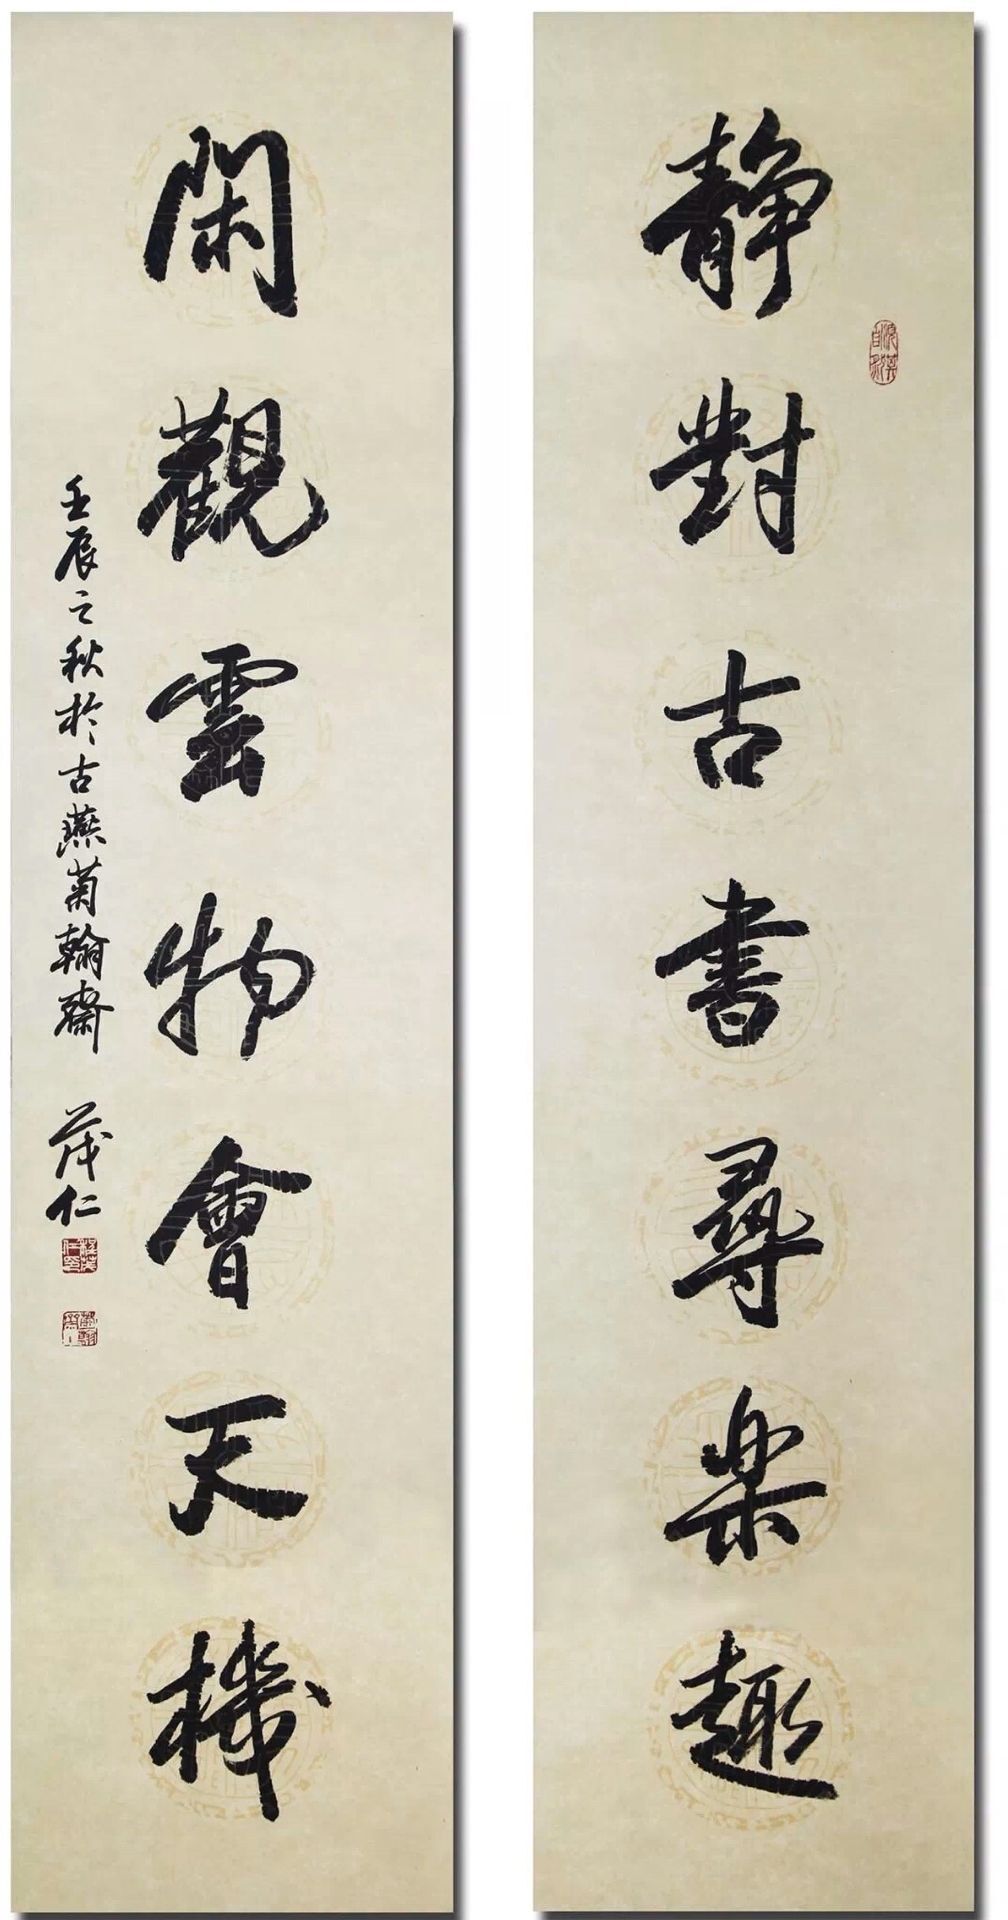 静對古書尋楽趣
閑觀雲物會天機
壬辰之秋於古燕菊翰齋 茂仁